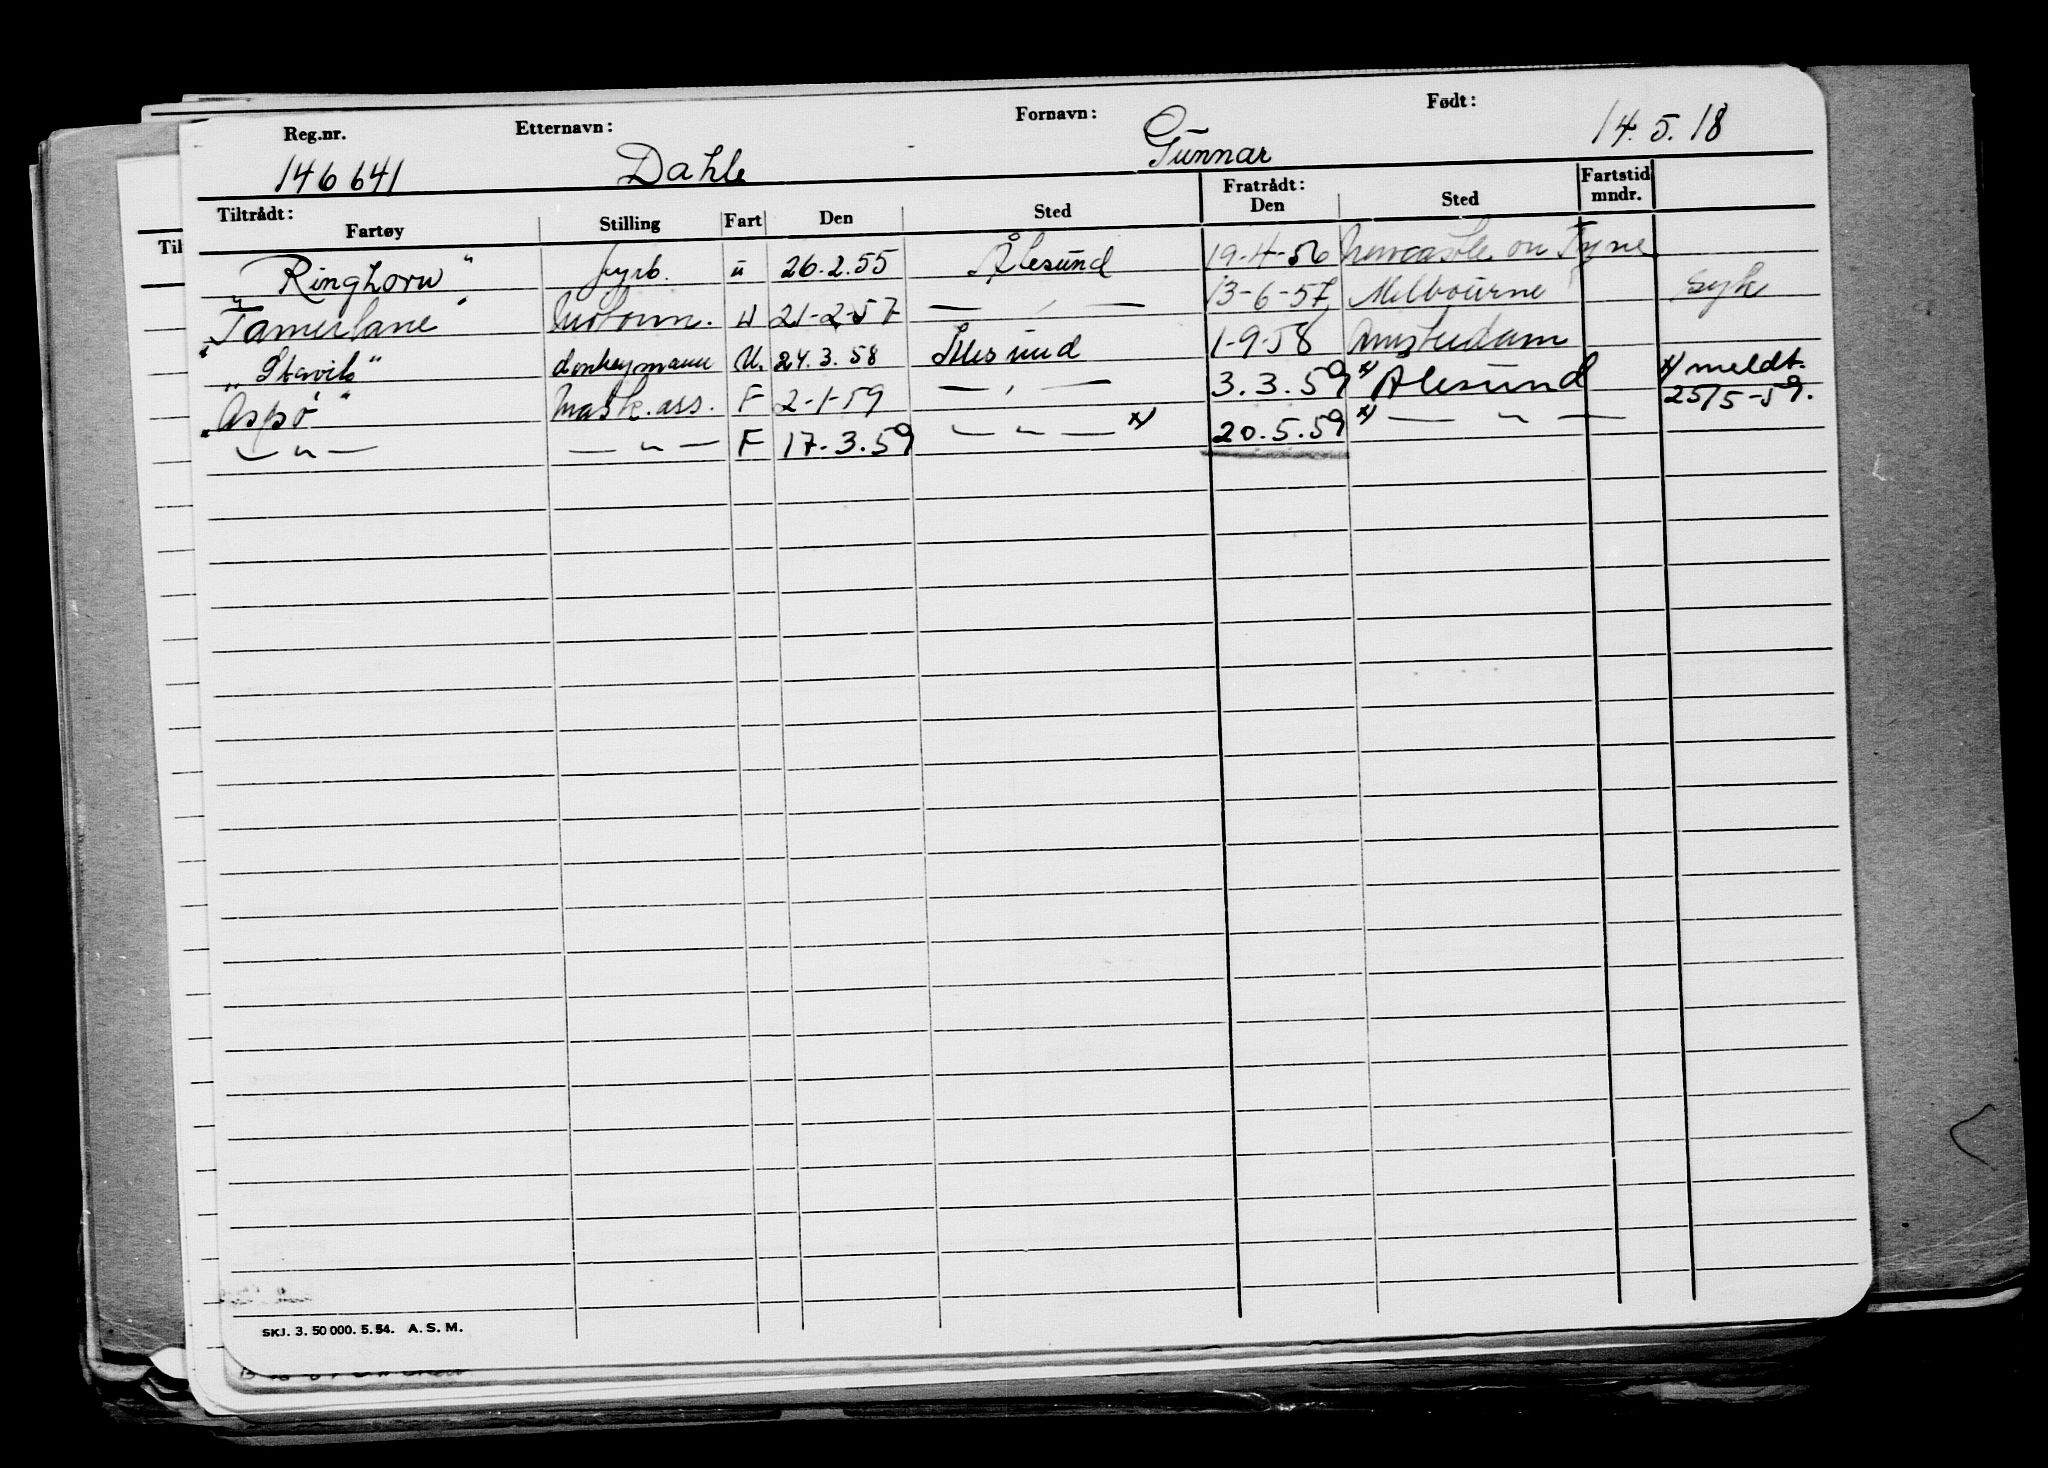 Reg.nr. Etternavn: Fornavn: Født:
146641 Dahle Gunnar 14.5.18
Tiltrådt: Fratrådt: Fartstid
Fartøy Stilling Fart Den Sted Den Sted mndr.
"Ringhorn" fyrb. u 26.2.55 Ålesund 19-4-56 Newcastle on Tyne
"Tamerlane" Motorm. U 21-2-57 — " — 13-6-57 Melbourne syk
"Stavik" donkeymann U. 24.3.58 Ålesund 1-9-58 Amsterdam
"Aspö" Mask.ass. F 2-1-59 — " — 3.3.59 x) Ålesund x) meldt.
— " — — " — F 17-3.59 — " — x) 20.5.59 x) — " — 25/5-59.
Til
SKJ. 3. 50 000. 5. 54. A. S. M.